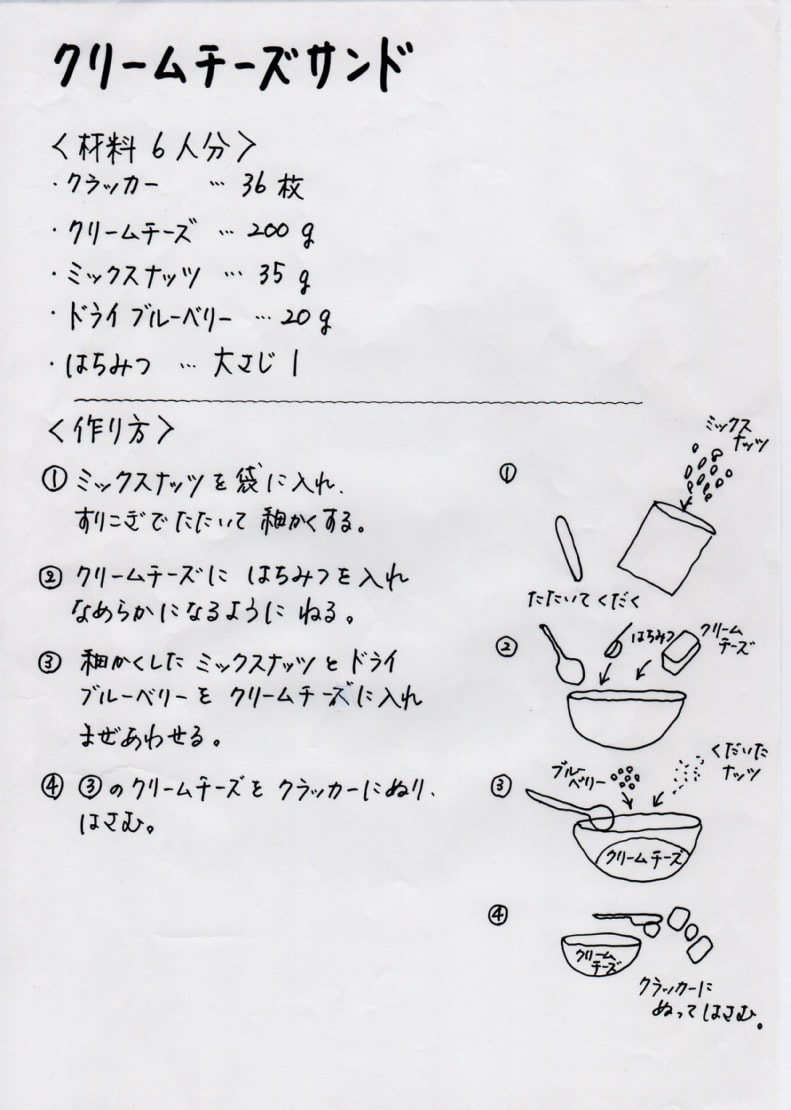 クリームチーズサンド
〈材料 6人分〉
・クラッカー … 36枚
・クリームチーズ … 200g
・ミックスナッツ … 35g
・ドライブルーベリー … 20g
・はちみつ … 大さじ1
〈作り方〉
① ミックスナッツを袋に入れ、
すりこぎでたたいて細かくする。
② クリームチーズに はちみつを入れ
なめらかになるように ねる。
③ 細かくした ミックスナッツと ドライ
ブルーベリーを クリームチーズに入れ
まぜあわせる。
④ ③のクリームチーズを クラッカーにぬり、
はさむ。
①
ミックス
ナッツ
たたいてくだく
②
はちみつ
クリーム
チーズ
③
ブルー
ベリー
くだいた
ナッツ
クリームチーズ
④
クリーム
チーズ
クラッカーに
ぬってはさむ。